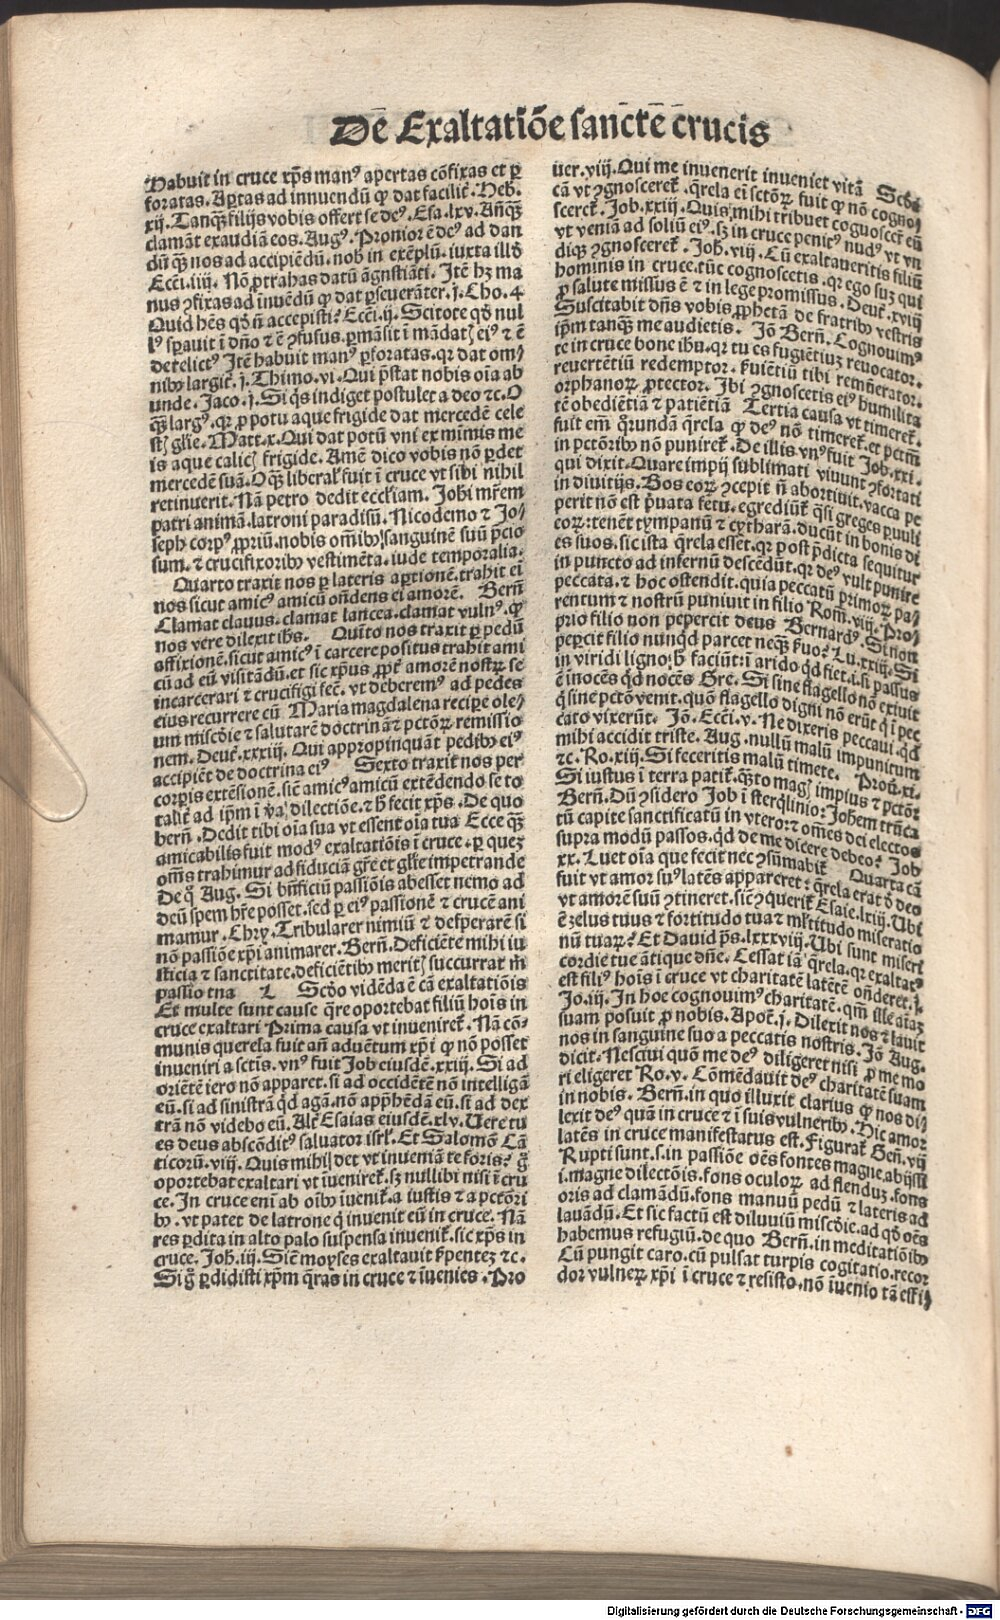 De Exaltatiōe sanctē crucis
Habuit in cruce xp̄s manꝰ apertas cōfixas et ꝑ
foratas. Aꝑtas ad innuendū ꝙ dat facilit̄. Heb.
xij. Tanqꝫ filijs vobis offert se deꝰ. Esa. lxv. Añqꝫ
clamāt exaudiā eos. Augꝰ. Pronior ē deꝰ ad dan
dū qꝫ nos ad accipiēdū. nob in exēplū. iuxta illđ
Ecci. iiij. Nō ꝓtrahas datū āgustiāti. Itē hꝫ ma
nus ꝯfixas ad inuēdū ꝙ dat ꝑseuerāter. j. Cho. 4
Quid hēs qđ nō accepisti? Ecci. ij. Scitote qđ nul
lꝰ sꝑauit ī dn̄o ⁊ ē ꝯfusus. ꝑmāsit ī mādatꝭ eiꝰ ⁊ ē
derelictꝰ Itē habuit manꝰ ꝑforatas. qꝛ dat om̄i
nibꝰ largit̄. j. Thimo. vi. Qui p̄stat nobis oīa ab
unde. Jaco. j. Si q̇s indiget postulet a deo ⁊c. O
qꝫ largꝰ. qꝛ ꝓ potu aque frigide dat mercedē cele
stꝭ gl̄ie. Matt. x. Qui dat potū vni ex minimis me
is aque calicꝭ frigide. Amē dico vobis nō ꝑdet
mercedē suā. Oqꝫ liberal̄ fuit ī cruce vt sibi nihil
retinuerit. Nā petro dedit eccl̄iam. Johi mr̄em
patri animā. latroni paradisū. Nicodemo ⁊ Jo⸗
seph corpꝰ ꝓpriū. nobis om̄ibꝰ sanguinē suū p̄cio
sum. ⁊ crucifixoribꝰ vestimēta. iude temporalia.
Quarto traxit nos ꝑ lateris aꝑtionē. trahit eī
nos sicut amicꝰ amicū ōn̄dens ei amorē. Bern̄
Clamat clauus. clamat lancea. clamat vulnꝰ. ꝙ
nos vere dilexit ihs. Quīto nos traxit ꝑ pedū
affixionē. sicut amicꝰ ī carcere positus trahit ami
cū ad eū visitādū. et sic xp̄us ꝓpt̄ amorē nostꝝ se
incarcerari ⁊ crucifigi fec̄. vt deberemꝰ ad pedes
eius recurrere cū Maria magdalena recipe ole⸗
um mīsc̄die ⁊ salutarē doctrinā ⁊ pctōꝝ remissio
nem. Deut̄. xxxiij. Qui appropinquāt pedibꝰ eiꝰ
accipiēt de doctrina eiꝰ Sexto traxit nos per
corpis extēsionē. sic̄ amicꝰ amicū extēdendo se to
talit̄ ad ip̄m ī via dilectiōe. ⁊ h̄ fecit xp̄s. De quo
bern̄. Dedit tibi oīa sua vt essent oīa tua Ecce qꝫ
amicabilis fuit modꝰ exaltatiōis ī cruce. ꝑ quez
om̄s trahimur ad fiduciā gr̄e et gl̄ie impetrande
De qͦ Aug. Si bn̄ficiū passiōis abesset nemo ad
deū spem hr̄e posset. sed ꝑ eiꝰ passionē ⁊ crucē ani
mamur. Chry. Tribularer nimiū ⁊ desperarē si
nō passiōe xp̄i animarer. Bern̄. Deficiēte mihi iu
sticia ⁊ sanctitate. deficiētibꝰ meritꝭ succurrat m̄
passio tua Scd̄o vidēda ē cā exaltatiōis
Et multe sunt cause qͣre oportebat filiū hoīs in
cruce exaltari Prima causa vt inueniret̄. Nā cō⸗
munis querela fuit an̄ aduētum xp̄i ꝙ nō posset
inueniri a sctīs. vnꝰ fuit Job eiusdē. xxiij. Si ad
oriētē iero nō apparet. si ad occidētē nō intelligā
eū. si ad sinistrā qđ agā. nō app̄hēdā eū. si ad dex
trā nō videbo eū. Alt̄ Esaias eiusdē. xlv. Uere tu
es deus abscōditꝰ saluator isrl̄. Et Salomō Cā
ticorū. viij. Quis mihi det vt inueniā te foris? gͦ
oportebat exaltari vt iueniret̄. sꝫ nullibi nisi ī cru
ce. In cruce eni ab oībꝰ iuenit̄. a iustis ⁊ a pctōri
bꝰ. vt patet de latrone q̇ inuenit eū in cruce. Nā
res ꝑdita in alto palo suspensa inuenit̄. sic xp̄s in
cruce. Joh. iij. Sic̄ moyses exaltauit s̄pentez ⁊c.
Si gͦ ꝑdidisti xp̄m qͣras in cruce ⁊ iuenies. Pro
uer. viij. Qui me inuenerit inueniet vitā Scd̄a
cā vt ꝯgnosceret̄. qͣrela ei sctōꝝ fuit ꝙ nō cogno⸗
sceret̄. Job. xxiij. Quis mihi tribuet cognoscer̄ eū
vt veniā ad soliū eiꝰ. sꝫ in cruce penitꝰ nudꝰ vt vn
diqꝫ ꝯgnosceret̄. Joh. viij. Cū exaltaueritis filiū
hominis in cruce. tūc cognoscetis. qꝛ ego suꝫ qui
ꝓ salute missus ē ⁊ in lege promissus. Deut̄. xviij
Suscitabit dn̄s vobis ꝓphetā de fratribꝰ vestris
ip̄m tanqꝫ me audietis. Jō Bern̄. Cognouimꝰ
te in cruce bone ihu. qꝛ tu es fugiētiuꝫ reuocator.
reuertētiū redemptor. s̄uiētiū tibi remūerator.
orphanoꝝ ꝓtector. Ibi ꝯgnoscetis eiꝰ humilita
tē obediētiā ⁊ patiētiā Tertia causa vt timeret̄.
fuit em̄ qͦrunda qͣrela ꝙ deꝰ nō timeret̄. et pctm̄
in pctōribꝰ nō puniret̄. De illis vnꝰ fuit Job. xxi.
qui dixit. Quare impij sublimati viuunt ꝯfortati
in diuitijs. Bos eoꝝ ꝯcepit n̄ abortiuit. vacca pe
perit nō est p̄uata fetu. egrediūt̄ q̄si greges ꝑuuli
eoꝝ: tenēt tympanū ⁊ cytharā. ducūt in bonis di
es suos. sic ista qͣrela esset. qꝛ post p̄dicta sequitur
in puncto ad infernū descēdūt. qꝛ deꝰ vult punire
peccata. ⁊ hoc ostendit. quia peccatū primoꝝ pa⸗
rentum ⁊ nostrū puniuit in filio Rom̄. viij. Pro⸗
prio filio non pepercit deus Bernardꝰ. Si non
pepercit filio nunqđ parcet nequā s̄uo? Lu. xxiij. Si
in viridi ligno h̄ faciūt: ī arido qđ fiet. i. si passus
ē inocēs qđ nocēs Gre. Si sine flagello nō exiuit
q̇ sine pctō venit. quō flagello digni nō erūt q̇ ī pec
cato vixerūt. Jō. Ecci. v. Ne dixeris peccaui. qđ
mihi accidit triste. Aug. nullū malū impunitum
⁊c. Ro. xiij. Si feceritis malū timete. Prou̅. xi.
Si iustus ī terra patit̄. qͣto magꝭ impius ⁊ pctōr
Bern̄. Dū ꝯsidero Job ī sterqlinio: Johem trūca
tū capite sanctificatū in vtero: ⁊ om̄es dei electos
supra modū passos. qđ de me dicere debeo? Job
xx. Luet oīa que fecit nec ꝯsūmabit̄ Quarta cā
fuit vt amor suꝰ latēs appareret: qͣrela erat ð deo
vt amorē suū ꝯtineret. sic̄ ꝯquerit̄ Esaie. lxiij. Ubi
ē zelus tuus ⁊ fortitudo tua ⁊ ml̄titudo miseratio
nū tuaꝝ? Et Dauid ps̄. lxxxviij. Ubi sunt miseri
cordie tue ātique dn̄e. Cessat iā qͣrela. qꝛ exaltatꝰ
est filiꝰ hoīs ī cruce vt charitatē latētē ōn̄deret. j.
Jo. iij. In hoc cognouimꝰ charitatē. qm̄ ille aīaꝫ
suam posuit ꝓ nobis. Apoc̄. j. Dilexit nos ⁊ lauit
nos in sanguine suo a peccatis nostris. Jō Aug.
dicit. Nesciui quō me deꝰ diligeret nisi ꝓ me mo
ri eligeret Ro. v. Cōmēdauit deꝰ charitatē suam
in nobis. Bern̄. in quo illuxit clarius ꝙ nos di⸗
lexit deꝰ quā in cruce ⁊ ī suis vulneribꝰ. Hic amor
latēs in cruce manifestatus est. Figurat̄ Gen̄. vij
Rupti sunt. s. in passiōe oēs fontes magne abijssi
i. magne dilectōis. fons oculoꝝ ad flenduꝫ. fons
oris ad clamādū. fons manuū pedū ⁊ lateris ad
lauādū. Et sic factū est diluuiū mīsc̄die. ad qđ oēs
habemus refugiū. de quo Bern̄. in meditatiōibꝰ
Cū pungit caro. cū pulsat turpis cogitatio. recor
dor vulneꝝ xp̄i ī cruce ⁊ resisto. nō īuenio tā effi⸗
Digitalisierung gefördert durch die Deutsche Forschungsgemeinschaft - DFG